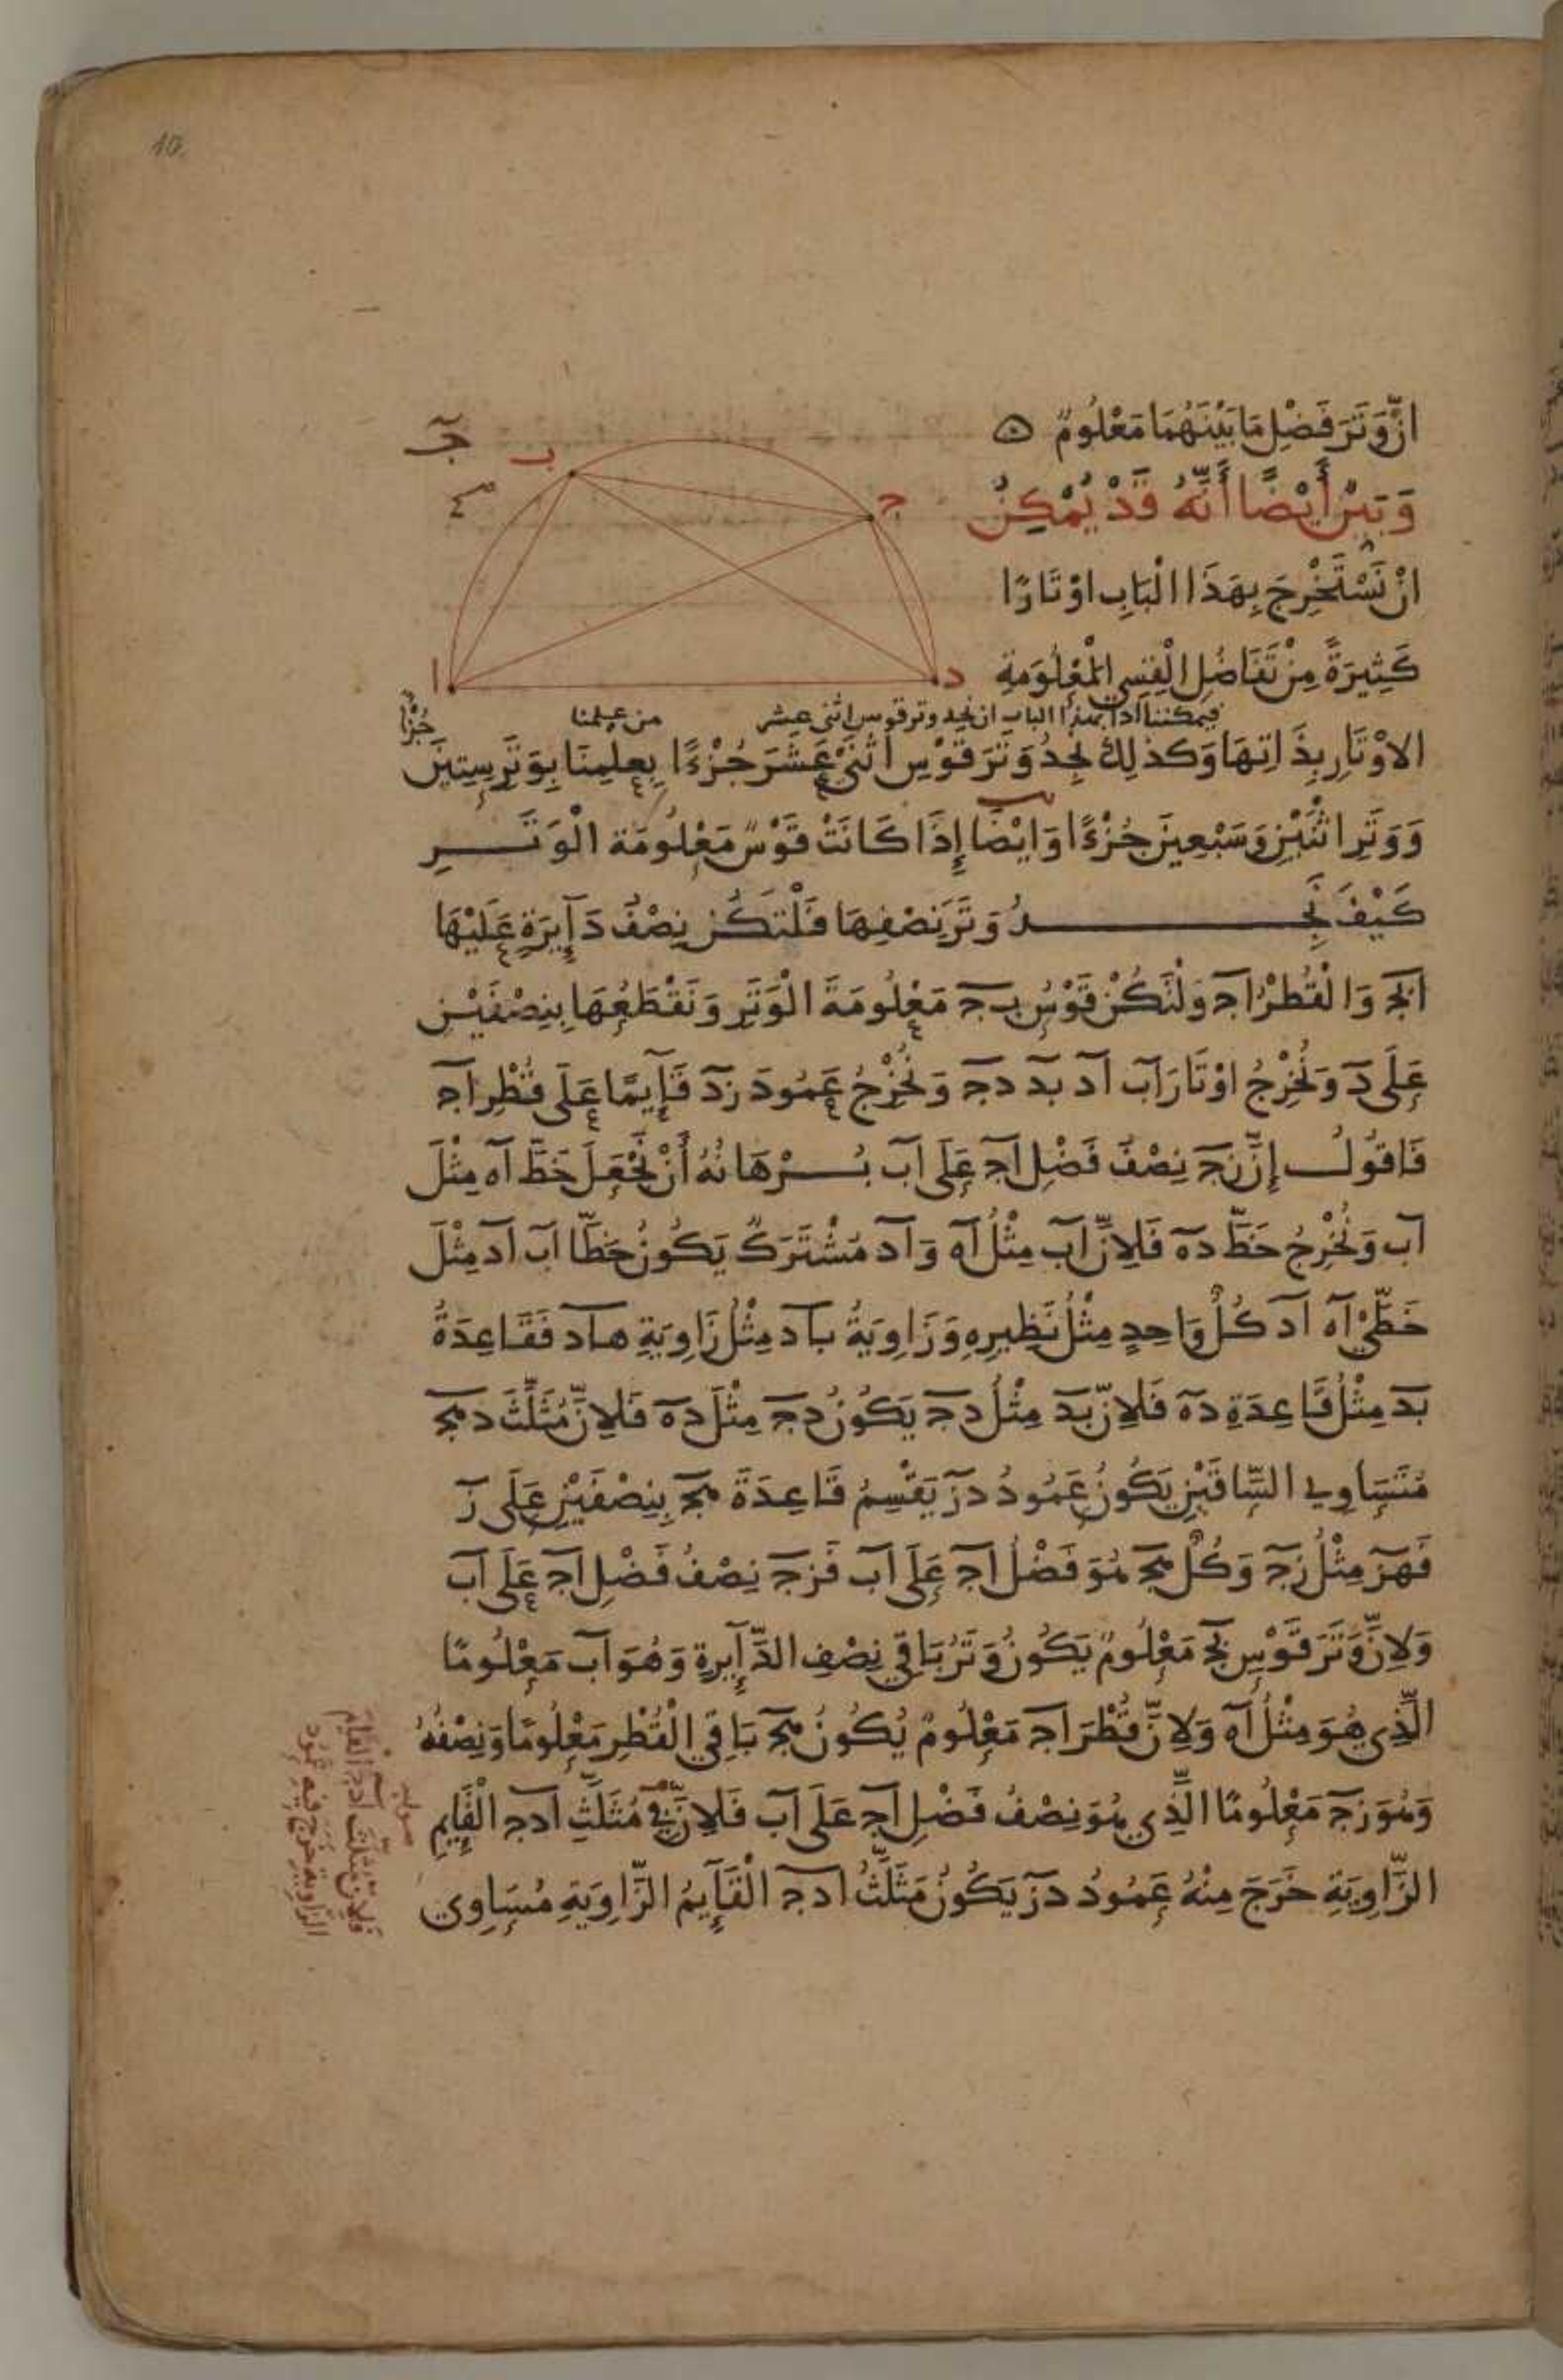 10
جـ
ب
ج
ا
د
انّ وَتَرَ فَضْلِ مَا بَيْنَهُمَا مَعْلُومٌ
وَبَيِّنٌ أَيْضًا أَنَّهُ قَدْ يُمْكِنُ
انْ نَسْتَخْرِجَ بِهَذَا الْبَابِ اوْتَارًا
كَثِيرَةً مِنْ تَفَاضُلِ الْقِسِي الْمَعْلُومَةِ
فيمكننا اذا بهذا الباب ان نجد وتر قوس اثنى عشر من علمنا
جُزْءًا
الاوْتَارِ بِذَاتِهَا وَكَذلِكَ نَجِدُ وَتَرَ قَوْسِ اثْنَيْ عَشَرَ جُزْءًا بِعِلْمِنَا بِوَتَرِ سِتِينَ
وَوَتَرِ اثْنَيْنِ وَسَبْعِينَ جُزْءًا وَايْضًا إِذَا كَانَتْ قَوْسٌ مَعْلُومَة الْوَتَرِ
كَيْفَ نَجِدُ وَتَرَ نِصْفِهَا فَلْتَكُنْ نِصْفُ دَآئِرَةٍ عَلَيْهَا
ابج وَالْقُطْرُ اج وَلْتَكُنْ قَوْسُ بج مَعْلُومَةَ الْوَتَرِ وَنَقْطَعُهَا بِنِصْفَيْنِ
عَلَى د وَنُخْرِجُ اوْتَارَ اب اد بد دج وَنُخْرِجُ عَمُودَ زد قَآئِمًا عَلَى قُطْرِ اج
فَاقُولُ إِنَّ زج نِصْفُ فَضْلِ اج عَلَى اب بُرْهَانُهُ أَنْ نَجْعَلَ خَطَّ اه مِثْلَ
اب وَنُخْرِجُ خَطَّ ده فَلِانَّ اب مِثْلُ اه وَاد مُشْتَرَكٌ يَكُونُ خَطَّا اب اد مِثْلَ
خَطَّيْ اه اد كُلُّ وَاحِدٍ مِثْلُ نَظِيرِهِ وَزَاوِيَةُ باد مِثْلُ زَاوِيَةِ هاد فَقَاعِدَةُ
بد مِثْلُ قَاعِدَةِ ده فَلِانّ بد مِثْلُ دج يَكُونُ دج مِثْلَ ده فَلِانَّ مُثَلَّثَ دهج
مُتَسَاوِي السَّاقَيْنِ يَكُونُ عَمُودُ دز يَقْسِمُ قَاعِدَةَ هج بِنِصْفَيْنِ عَلَى ز
فَهز مِثْلُ زج وَكُلُّ هج هُوَ فَضْلُ اج عَلَى اب فَزج نِصْفُ فَضْلِ اج عَلَى اب
وَلِانَّ وَتَرَ قَوْسِ بج مَعْلُومٌ يَكُونُ وَتَرُ بَاقِي نِصْفِ الدَّآئِرةِ وَهُوَ اب مَعْلُومًا
الَّذِي هُوَ مِثْلُ اه وَلِانَّ قُطْرَ اج مَعْلُومٌ يُكُونُ هج بَاقِي الْقُطْرِ مَعْلُومًا وَنِصْفُهُ
وَهُوَ زج مَعْلُومًا الَّذِي هُوَ نِصْفُ فَضْلِ اج عَلَى اب فَلِانَّ فِي مُثَلَّثِ ادج الْقَايِمِ
الزَّاوِيَةِ خَرَجَ مِنْهُ عَمُودُ دز يَكُونُ مَثَلَّثُ ادج الْقَآئِمُ الزَّاوِيَةِ مُسَاوِي
فَلِانّ مُثَلَّثَ ادج الْقَايِمَ
الزاوية خَرَجَ فيه عَمُود